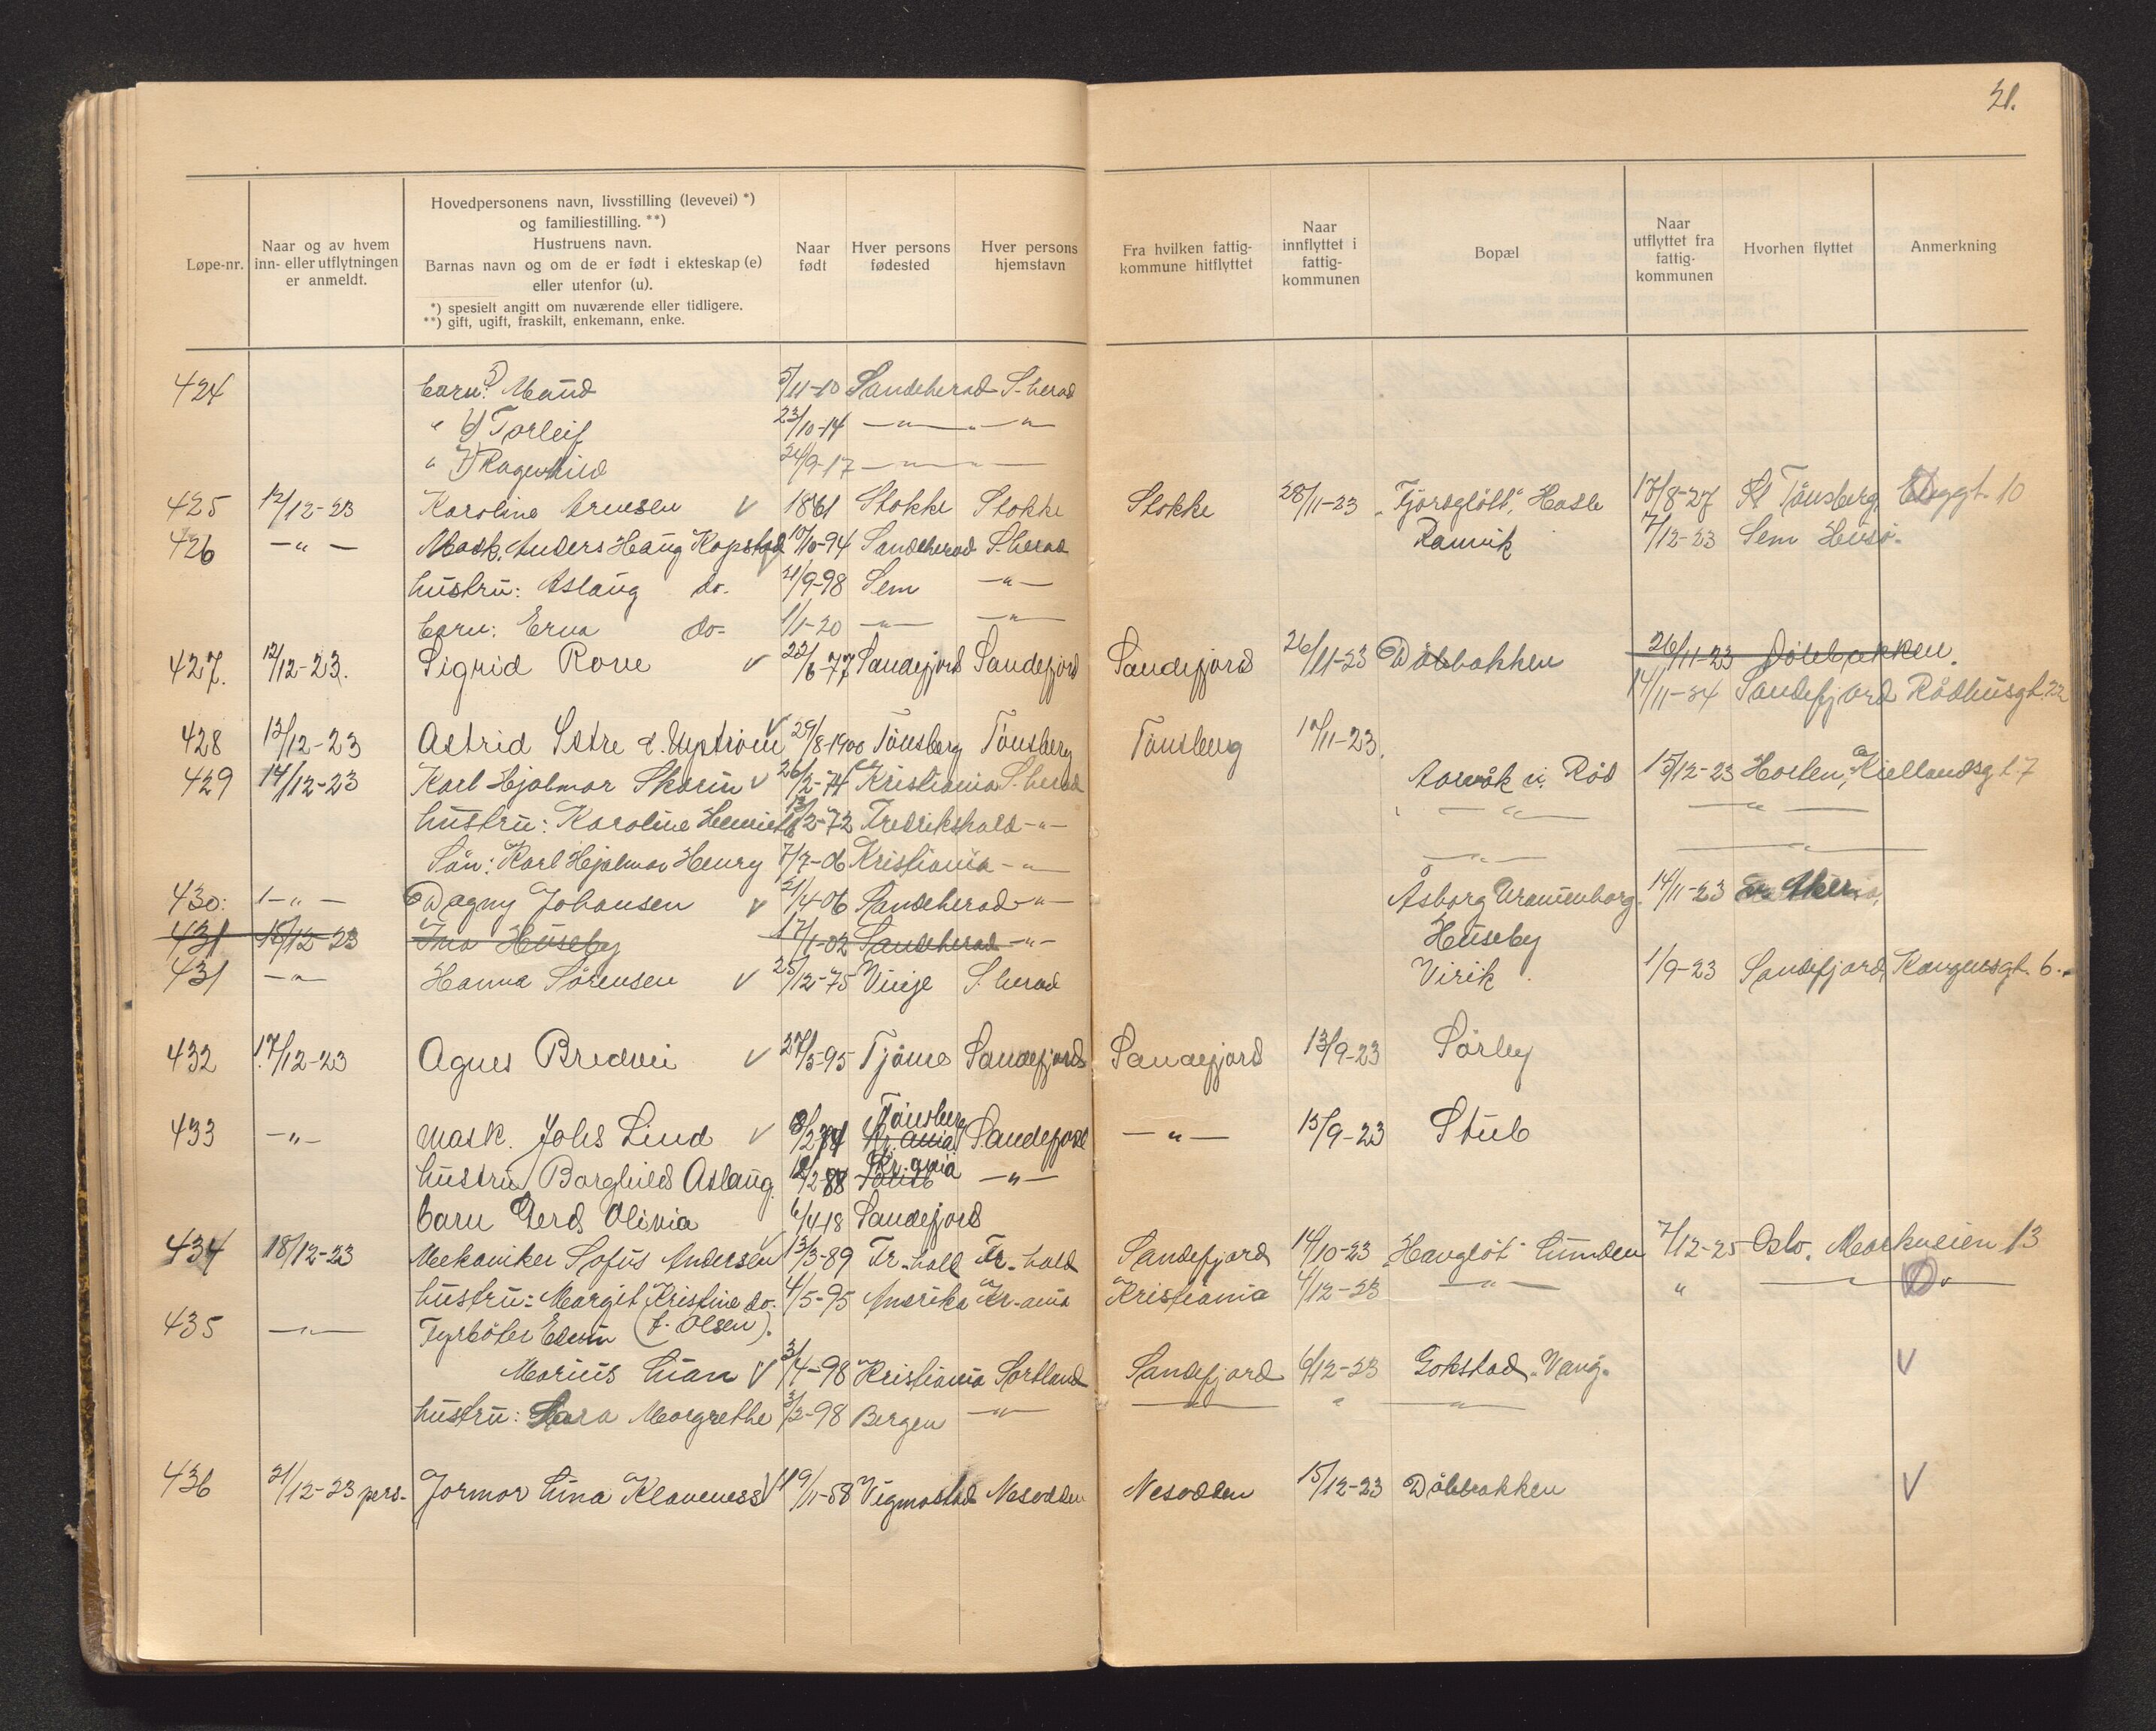 21.
Løpe-nr.
Naar og av hvem
inn- eller utflytningen
er anmeldt.
Hovedpersonens navn, livsstilling (levevei) *)
og familiestilling. **)
Hustruens navn.
Barnas navn og om de er født i ekteskap (e)
eller utenfor (u).
*) spesielt angitt om nuværende eller tidligere.
**) gift, ugift, fraskilt, enkemann, enke.
Naar
født
Hver persons
fødested
Hver persons
hjemstavn
Fra hvilken fattig-
kommune hitflyttet
Naar
innflyttet i
fattig-
kommunen
Bopæl
Naar
utflyttet fra
fattig-
kommunen
Hvorhen flyttet
Anmerkning
424 barn: 5) Maud 5/11-10 Sandeherad S-herad
" 6) Torleif 23/10-14 —"— —"—
" 7) Ragnhild 24/9-17 —"— —"—
425 12/12-23 Karoline Arnesen V 1861 Stokke Stokke Stokke 28/11-23 "Fjordgløtt", Hasle 17/8-27 Tønsberg, 10
426 —"— Mask. Anders Haug Kopstad 10/10-94 Sandeherad S-herad Ranvik 7/12-23 Sem Husø.
hustru: Aslaug do. 21/9-98 Sem —"—
barn: Erna do- 1/1-20 —"— —"—
427. 12/12-23. Sigrid Rove V 22/6-77 Sandefjord Sandefjord Sandefjord 26/11-23 Dølebakken 26/11-23 Dølebakken.
14/11-34 Sandefjord Rådhusgt. 22
428 13/12-23 Astrid Sstre f. V 29/8-1900 Tønsberg Tønsberg Tønsberg 17/11-23.
429 14/12-23 Karl Hjalmar Skarin V 26/2-74 Kristiania S. herad Rød 15/12-23 Horten, Kiellandsgt. 7
hustru: Karoline 13/2-72 Fredrikshald —"— —"— —"—
Søn: Karl Hjalmar Henry 7/7-06 Kristiania —"— —"— —"—
430: —"— Dagny Johansen V 21/4-06 Sandeherad —"— Åsborg Uranienborg. 14/11-23
431 15/12-23 Ina Huseby 17/1-02 Sandeherad —"— Huseby
431 —"— Hanna Sørensen V 25/12-75 Vinje S. herad Virik. 1/9-23 Sandefjord, Kongensgt. 6.
432 17/12-23 Agnes Bredvei V 27/5-95 Tjøme Sandefjord Sandefjord 13/9-23 Sørby
433 —"— Mask. Johs Lind V 8/2 74 Tønsberg Kr.ania Sandefjord —"— 15/9-23 Stub
hustru Borghild Aslaug 12/2-88 Kr.ania —"—
barn Gerd Olivia 6/4-18 Sandefjord
434 18/12-23 Mekaniker Sofus Andersen V 13/3-89 Fr.-hald Fr.-hald Sandefjord 14/10-23 "Havgløt" Lunden 7/12-25 Oslo. Markveien 13
hustru: Margit Kristine do. 4/5-95 Amerika Kr-ania Kristiania 4/12-23 —"— " —"—
(f. Olsen).
435 —"— Fyrbøter Edvin
Marius Lian V 3/4-98 Kristiania Sortland Sandefjord 6/12-23 Gokstad. Vang. V
hustru: Sara Margrethe 3/2-98 Bergen —"— —"— " —"—
436 21/12-23 pers. Jormor Lina Klaveness V 19/11-58 Vigmostad Nesodden Nesodden 15/12-23 Dølebakken V